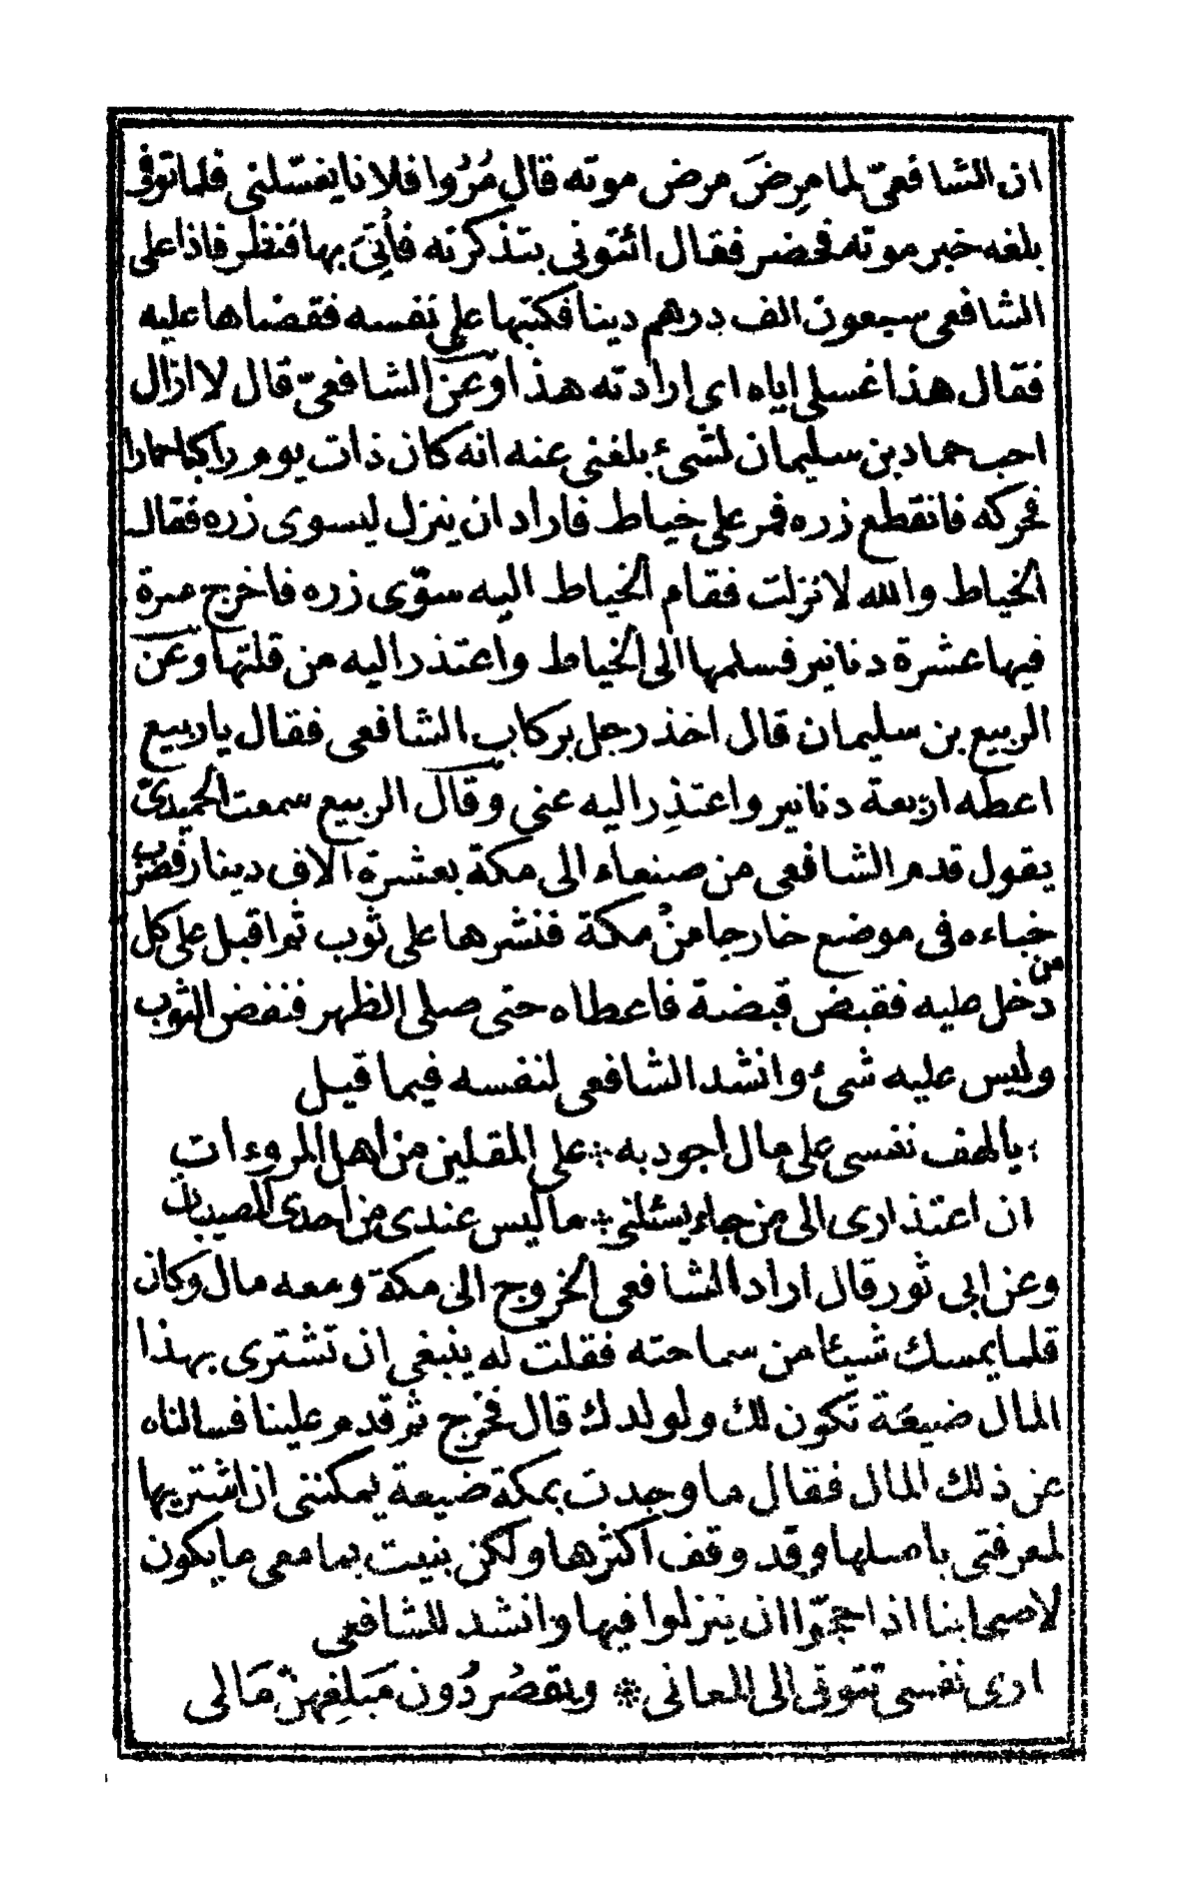 ان الشافعىّ لما مرِضَ مرض موته قال مُرُوا فلانا يغسّلنى فلما توفى
بلغه خبر موته فحضر فقال ائتونى بتذكرته فأُتِىَ بها فنظر فاذا على
الشافعى سبعون الف درهم دينا فكتبها على نفسه فقضاها عليه
فقال هذا غسلى اياه اى ارادته هذا وعن الشافعىّ قال لا ازال
احب حماد بن سليمان لشىء بلغنى عنه انه كان ذات يوم راكبا حمارا
فحركه فانقطع زره فمر على خياط فاراد ان ينزل ليسوى زره فقال
الخياط والله لا نزلت فقام الخياط اليه سوّى زره فاخرج صرة
فيها عشرة دنانير فسلمها الى الخياط واعتذر اليه من قلتها وعن
الربيع بن سليمان قال اخذ رجل بركاب الشافعى فقال يا ربيع
اعطه اربعة دنانير واعتذِر اليه عنى وقال الربيع سمعت الحميدىّ
يقول قدم الشافعى من صنعاء الى مكة بعشرة آلاف دينار فضرب
خباءه فى موضع خارجا من مكة فنثرها على ثوب ثم اقبل على كل
من دخل عليه فقبض قبضة فاعطاه حتى صلى الظهر فنفض الثوب
وليس عليه شىء وانشد الشافعى لنفسه فيما قيل
يا لهف نفسى على مال اجود به * على المقلين من اهل المروءات
ان اعتذارى الى من جاء يسئلنى * ما ليس عندى من احدى المصيبات
وعن ابى ثور قال اراد الشافعى الخروج الى مكة ومعه مال وكان
قلما يمسك شيئا من سماحته فقلت له ينبغى ان تشترى بهذا
المال ضيعَة تكون لك ولولدك قال فخرج ثم قدم علينا فسالناه
عن ذلك المال فقال ما وجدت بمكة ضيعة يمكننى ان اشتريها
لمعرفتى باصلها وقد وقف اكثرها ولكن بنيت بما معى ما يكون
لاصحابنا اذا حجّوا ان ينزلوا فيها وانشد للشافعى
ارى نفسى تتوق الى المعانى * ويقصُر دُون مَبلغِهنّ مَالى